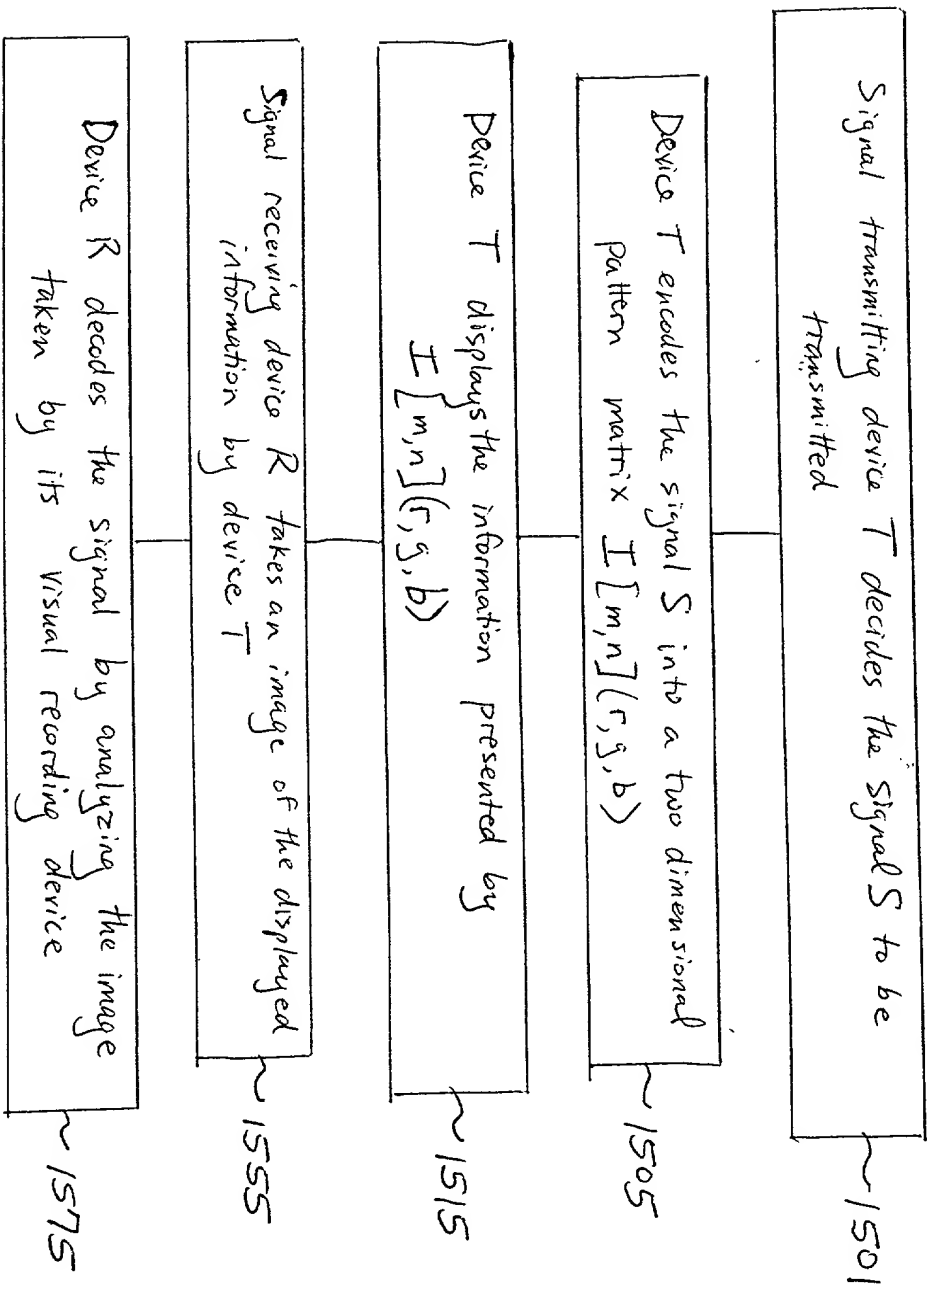 Signal transmitting device T decides the signal S to be
transmitted
~1501
Device T encodes the signal S into a two dimensional
pattern matrix I[m,n](r,g,b)
~1505
Device T displays the information presented by
I[m,n](r,g,b)
~1515
Signal receiving device R takes an image of the displayed
information by device T
~1555
Device R decodes the signal by analyzing the image
taken by its visual recording device
~1575